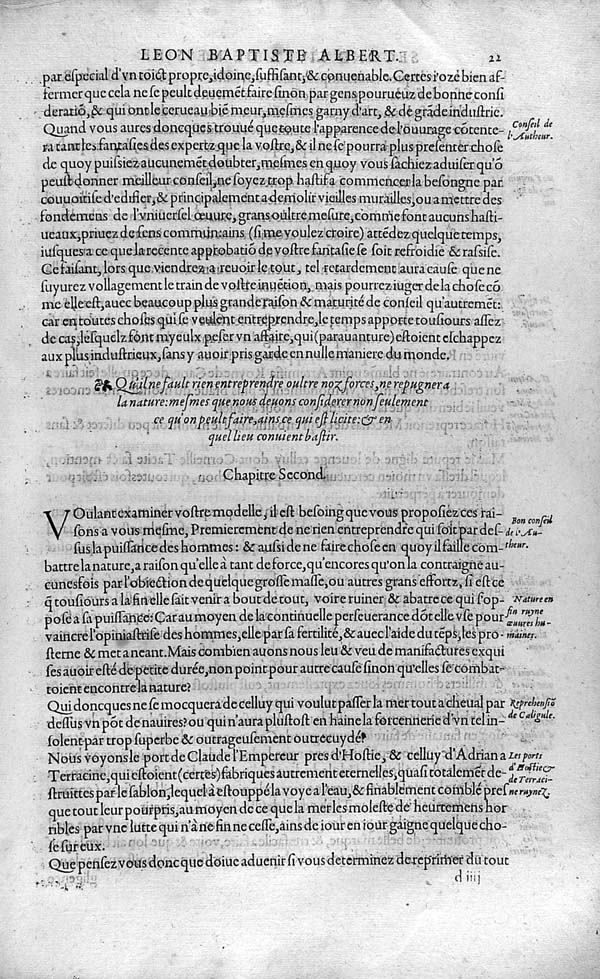 LEON BAPTISTE ALBERT. 22
par especial d'vn toict propre, idoine, suffisant, & conuenable. Certes i'oze bien af-
fermer que cela ne se peult deuemēt faire sinon par gens pourueuz de bonne consi
deratiō, & qui ont le cerueau biē meur, mesmes garny d'art, & de grāde industrie.
Quand vous aures doncques trouué que toute l'apparence de l'ouurage cōtente-
ra tant les fantasies des expertz que la vostre, & il ne se pourra plus presenter chose
de quoy puissiez aucunemēt doubter, mesmes en quoy vous sachiez aduiser qu'ō
peust donner meilleur conseil, ne soyez trop hastif a commencer la besongne par
couuoitise d'edifier, & principalement a demolir vieilles murailles, ou a mettre des
fondemens de l'vniuersel œuure, grans oultre mesure, comme font aucuns hasti-
ueaux, priuez de sens commun: ains (si me voulez croire) attēdez quelque temps,
iusques a ce que la recente approbatiō de vostre fantasie se soit refroidie & rassise.
Ce faisant, lors que viendrez a reuoir le tout, tel retardement aura cause que ne
suyurez vollagement le train de vostre inuētion, mais pourrez iuger de la chose cō
me elle est, auec beaucoup plus grande raison & maturité de conseil qu'autremēt:
car en toutes choses qui se veulent entreprendre, le temps apporte tousiours assez
de cas, lesquelz font myeulx peser vn affaire, qui (parauanture) estoient eschappez
aux plus industrieux, sans y auoir pris garde en nulle maniere du monde.
Conseil de
l'Autheur.
Qu'il ne fault rien entreprendre oultre noz forces, ne repugner a
la nature: mesmes que nous deuons considerer non seulement
ce qu'on peult faire, ains ce qui est licite: & en
quel lieu conuient bastir.
Chapitre Second.
VOulant examiner vostre modelle, il est besoing que vous proposiez ces rai-
sons a vous mesme, Premierement de ne rien entreprendre qui soit par des-
sus la puissance des hommes: & aussi de ne faire chose en quoy il faille com-
battre la nature, a raison qu'elle à tant de force, qu'encores qu'on la contraigne au-
cunesfois par l'obiection de quelque grosse masse, ou autres grans effortz, si est ce
q̄ tousiours a la fin elle sait venir a bout de tout, voire ruiner & abatre ce qui s'op-
pose a sa puissance: Car au moyen de la continuelle perseuerance dōt elle vse pour
vaincre l'opiniastrise des hommes, elle par sa fertilité, & auec l'aide du tēps, les pro-
sterne & met a neant. Mais combien auons nous leu & veu de manifactures exqui
ses auoir esté de petite durée, non point pour autre cause sinon qu'elles se combat-
toient encontre la nature?
Bon conseil
de l'Au-
theur.
Nature en
fin ruyne
œuures hu-
maines.
Qui doncques ne se mocquera de celluy qui voulut passer la mer tout a cheual par
dessus vn pōt de nauires? ou qui n'aura plustost en haine la forcennerie d'vn tel in-
solent par trop superbe & outrageusement outrecuydé?
Reprehensiō
de Caligule.
Nous voyons le port de Claude l'Empereur pres d'Hostie, & celluy d'Adrian a
Terracine, qui estoient (certes) fabriques autrement eternelles, quasi totalemēt de-
struittes par le sablon, lequel à estouppé la voye a l'eau, & finablement comblé pres
que tout leur pourpris, au moyen de ce que la mer les moleste de heurtemens hor
ribles par vne lutte qui n'à ne fin ne cesse, ains de iour en iour gaigne quelque cho-
se sur eux.
Les ports
d'Hostie &
de Terraci-
ne ruynez.
Que pensez vous donc que doiue aduenir si vous determinez de reprimer du tout
d iiij